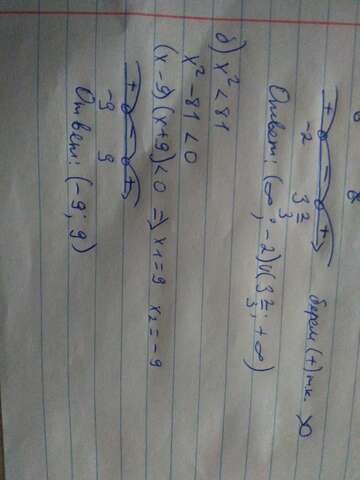 + - +
-2 3 2/3 берем (+) т.к. >0
Ответ: (∞; -2)∪(3 2/3; +∞)
б) x² < 81
x² - 81 < 0
(x-9)(x+9) < 0 => x1 = 9 x2 = -9
+ - +
-9 9
Ответ: (-9; 9)